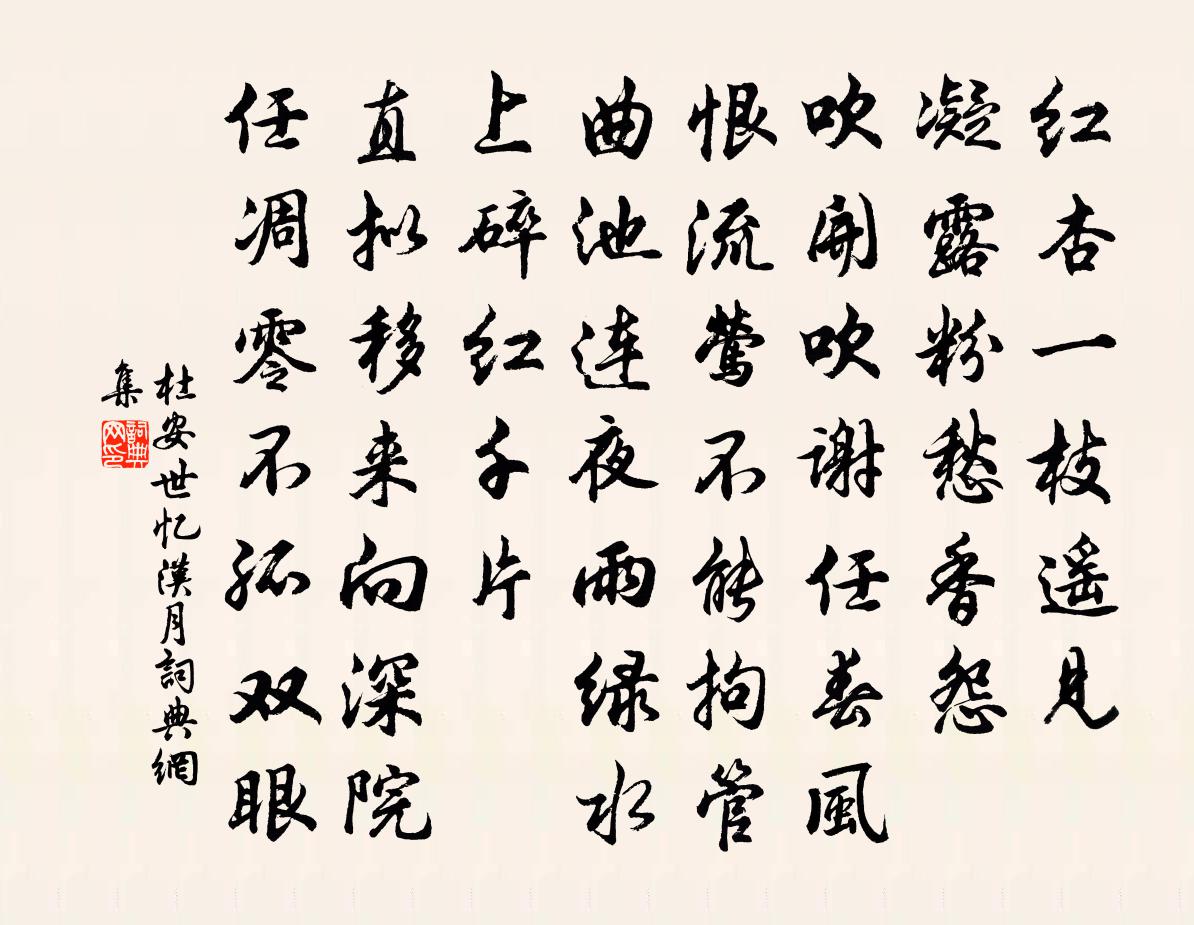 红杏一枝遥见
凝露粉愁香怨
吹開吹谢任春風
恨流莺不能拘管
曲池连夜雨绿水
上碎红千片
直拟移来向深院
任凋零不孤双眼
杜安世忆漢月詞典網
集
詞典網印